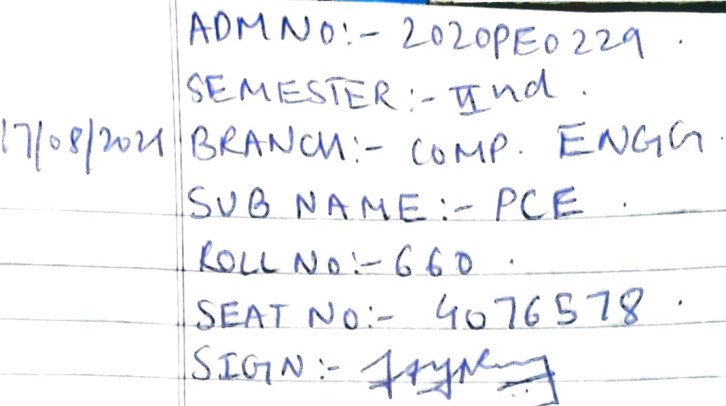 ADM NO:- 2020PE0229.
SEMESTER:- IInd.
17/08/2021 BRANCH:- COMP. ENGG.
SUB NAME:- PCE.
ROLL NO:- 660.
SEAT NO:- 4076578.
SIGN:-